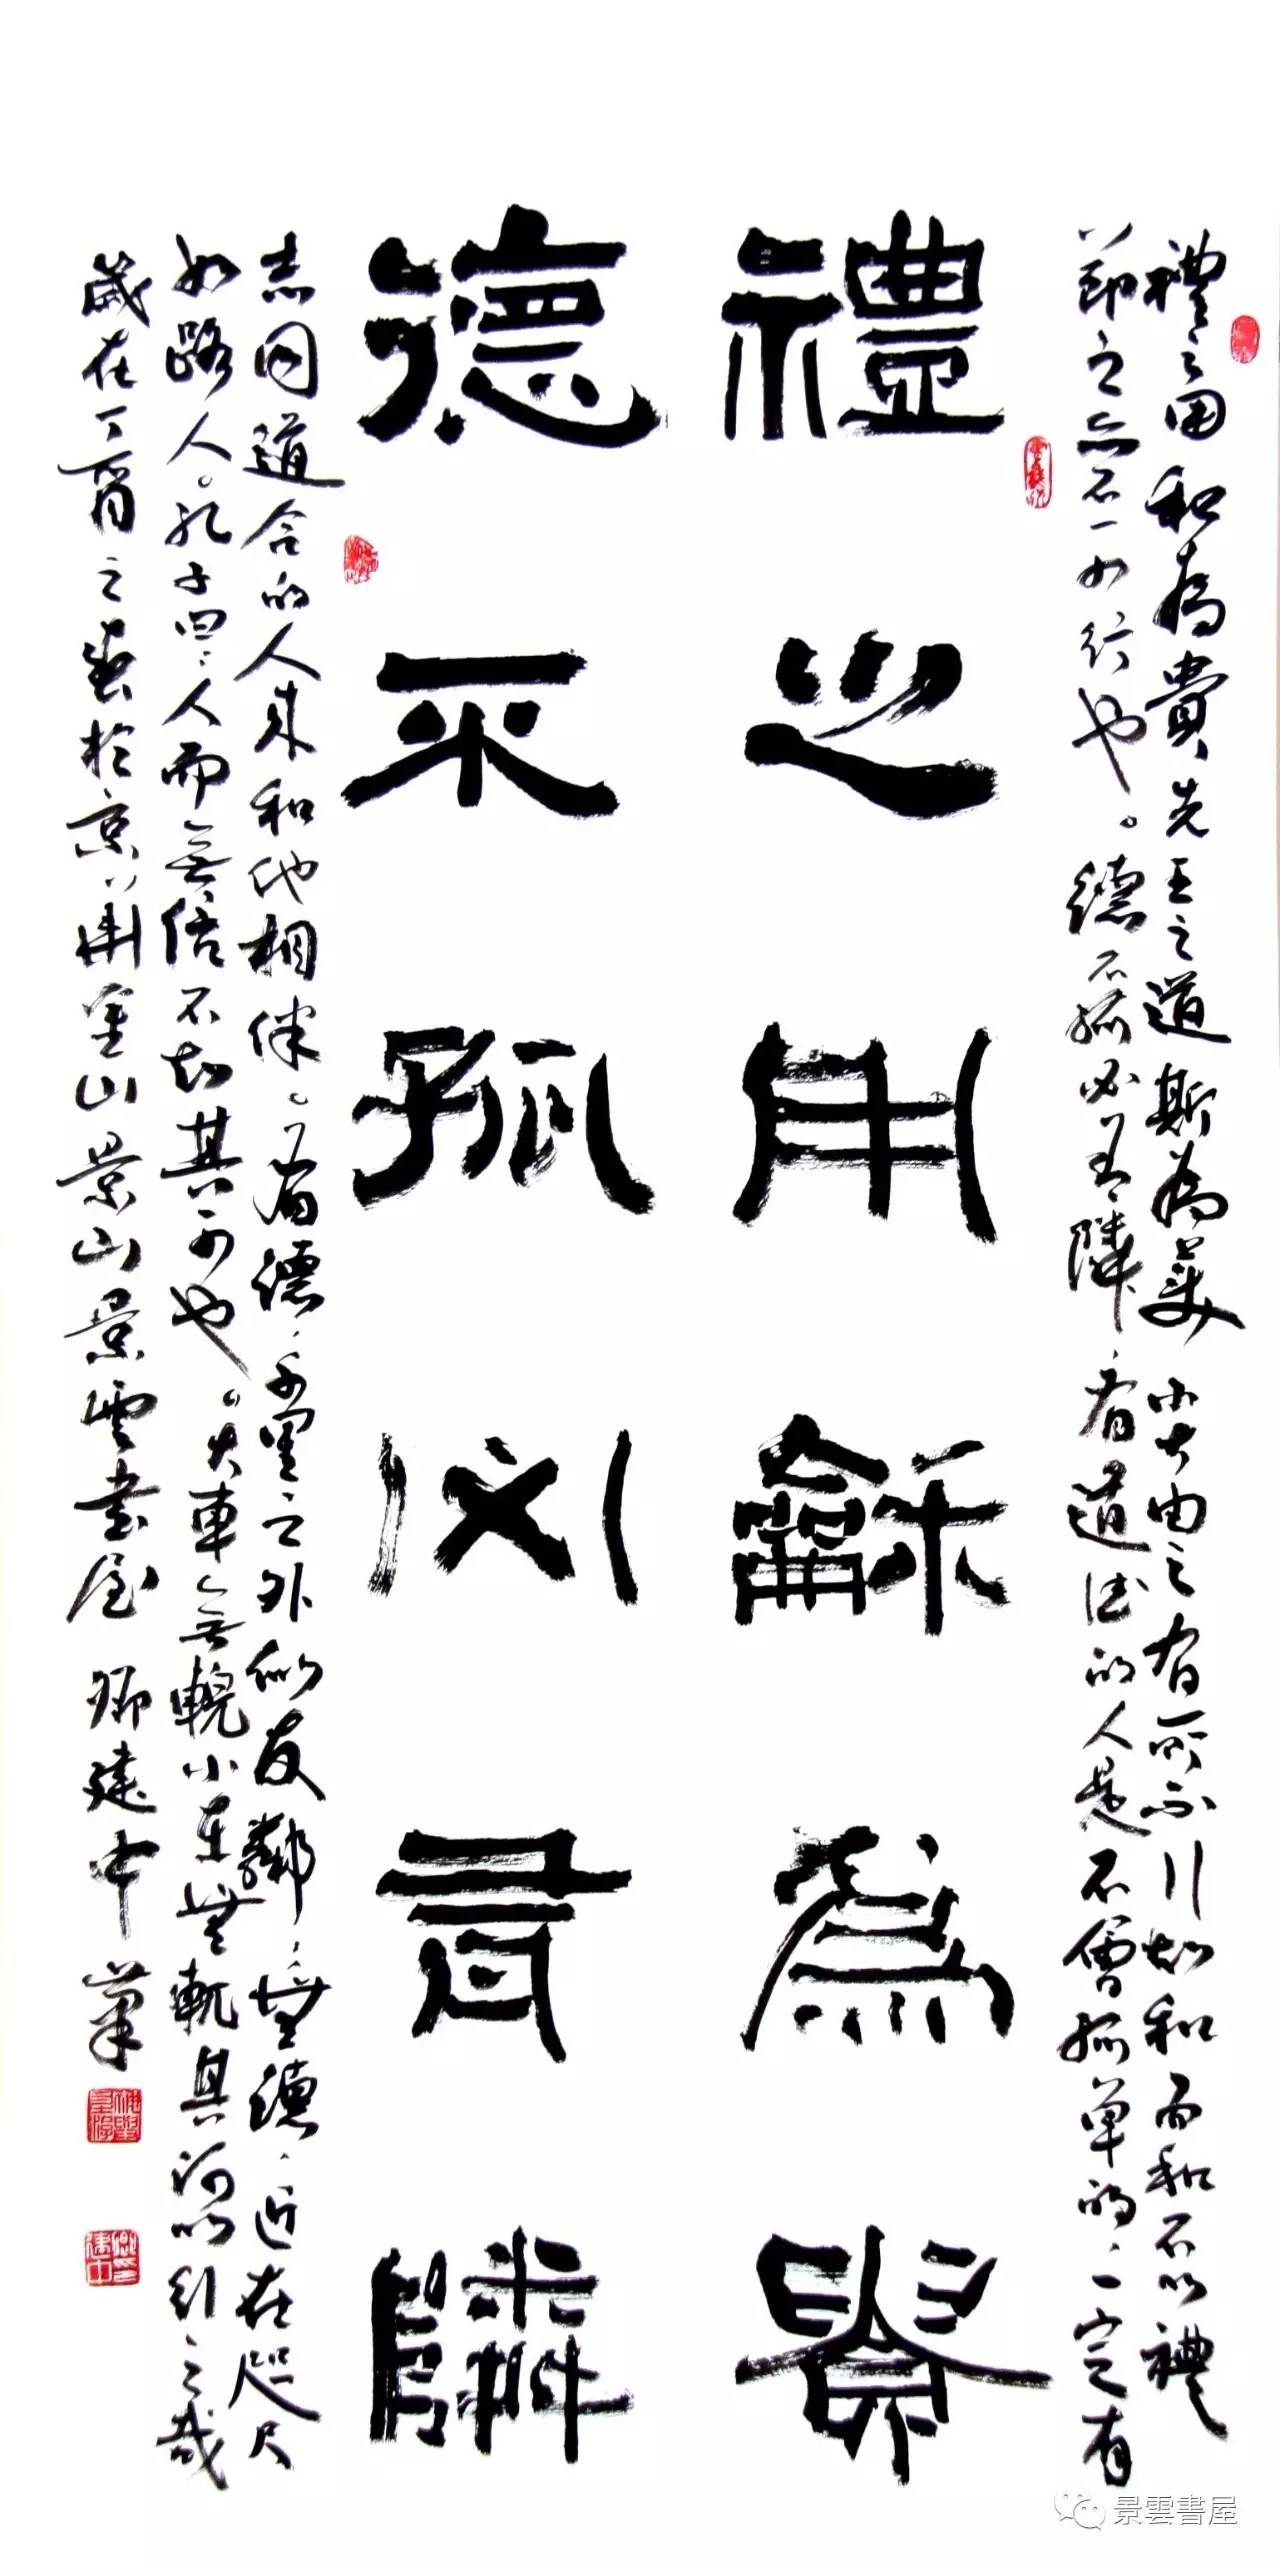 禮之用和為貴先王之道斯為美小大由之有所不行知和而和不以禮
節之亦不可行也。德不孤必有隣,有道德的人是不會孤單的,一定有
禮之用龢爲貴
德不孤必有隣
志同道合的人来和他相伴。有德,千里之外似友鄰,無德,近在咫尺
如路人。孔子曰:人而無信不知其可也。大車無輗小車無軏其何以行之哉
歲在丁酉之春於京華金山景山景雲書屋 建中筆
景雲書屋